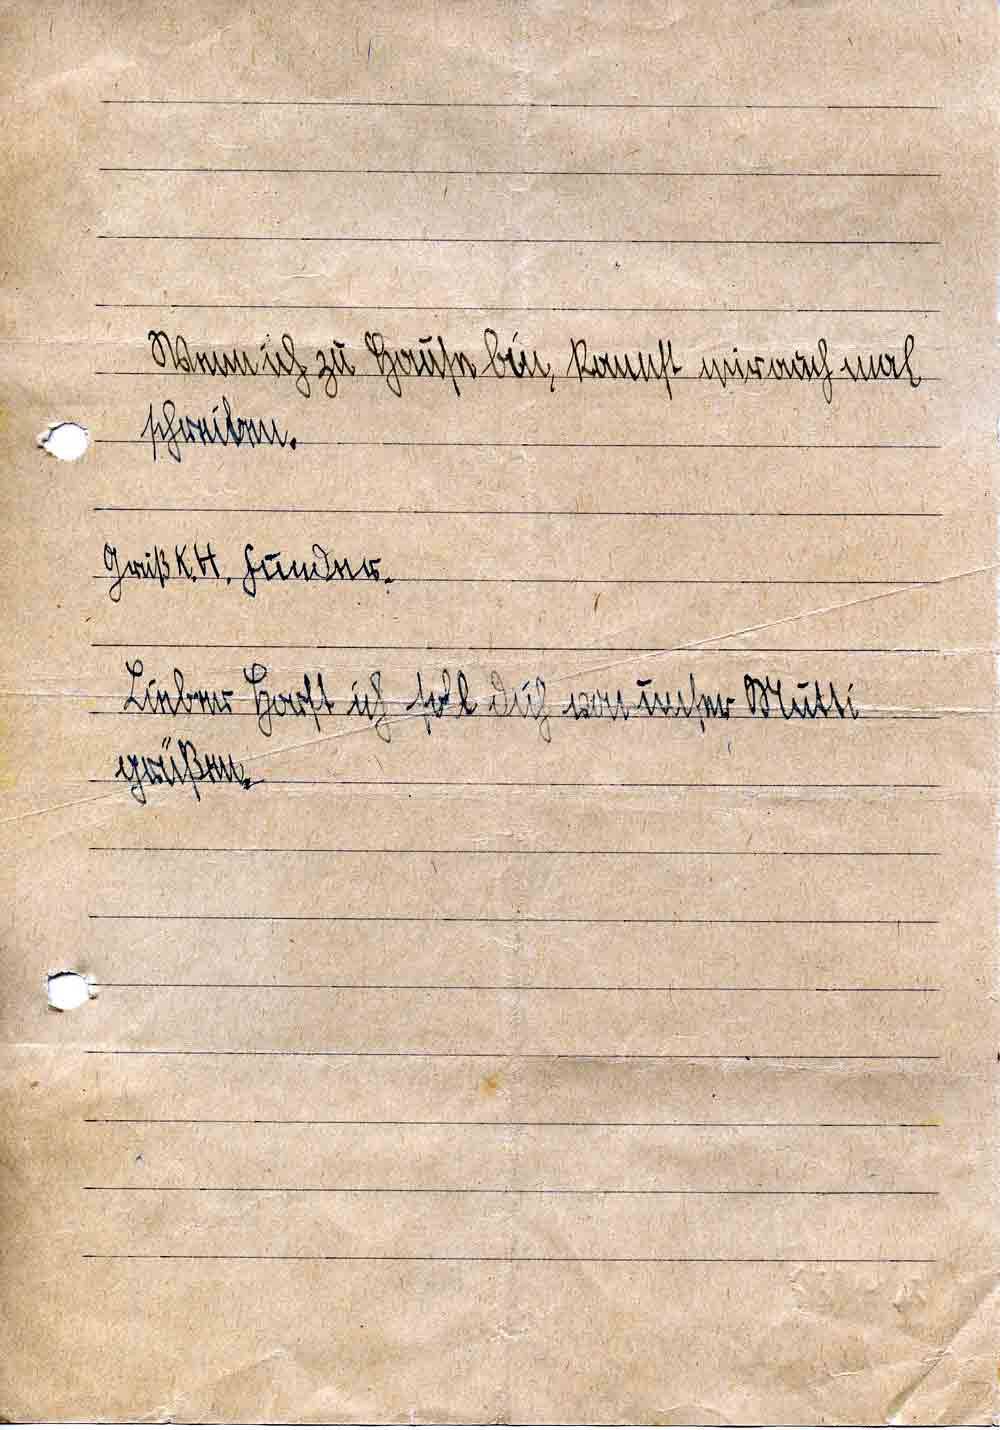 Wenn ich zu Hause bin, kannst mir auch mal
schreiben.
Gruß K. H.
Lieber Horst ich soll dich von unser Mutti
grüßen.